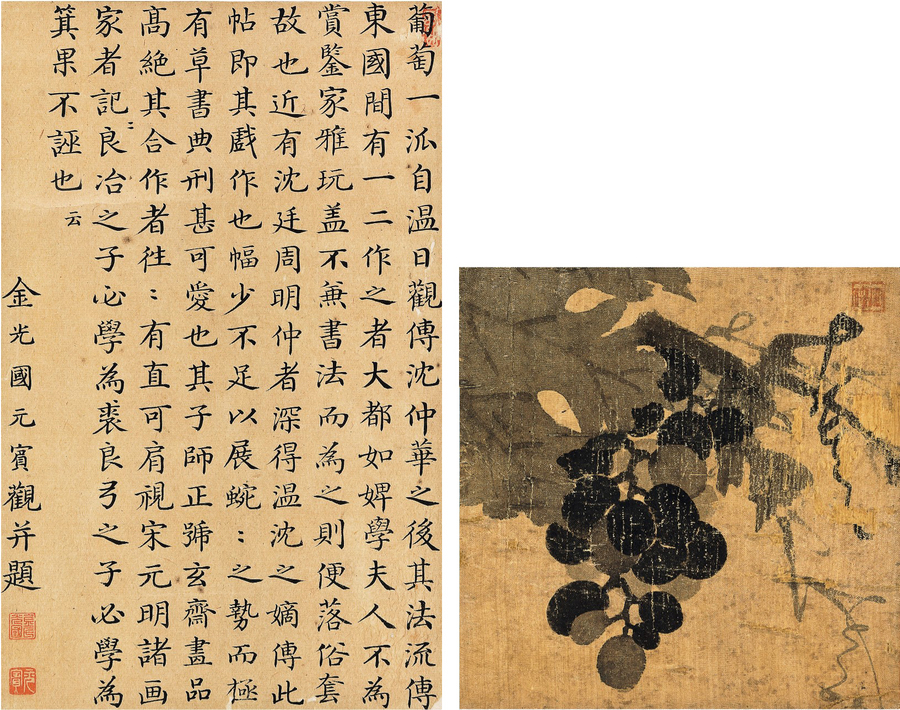 葡萄一派自温日觀傳沈仲華之後其法流傳
東國間有一二作之者大都如婢學夫人不為
賞鑒家雅玩盖不兼書法而為之則便落俗套
故也近有沈廷周明仲者深得温沈之嫡傳此
帖即其戲作也幅少不足以展蜿〻之勢而極
有草書典刑甚可愛也其子師正號玄齋畫品
髙絶其合作者往〻有直可肩視宋元明諸画
家者記良冶之子必學為裘良弓之子必學為
箕果不誣也云
金光國元賓觀并題